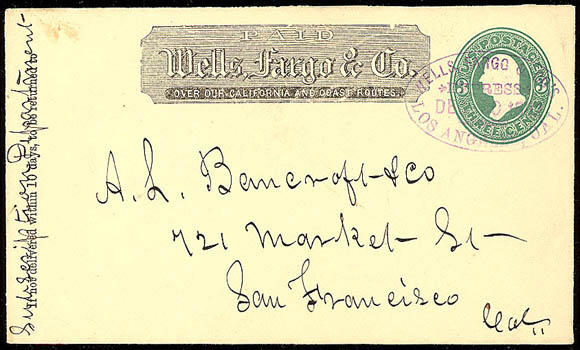 PAID
Wells, Fargo & Co.
OVER OUR CALIFORNIA AND COAST ROUTES.
U.S. POSTAGE
3 3
THREE CENTS
WELLS FARGO &
EXPRESS
DE
LOS ANGELES, CAL.
A. L. Bancroft & Co
721 Market St
San Francisco
Cal.,
Subscription Department
If not delivered within 10 days, to be returned to